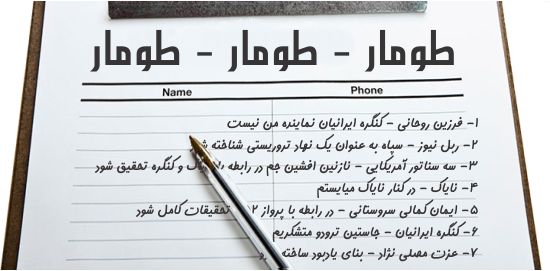 طومار - طومار - طومار
Name Phone
۱- فرزین روحانی - کنگره ایرانیان نماینده من نیست
۲- ربل نیوز - سپاه به عنوان یک نهاد تروریستی شناخته
۳- سه سناتور آمریکایی - نازنین افشین جم در رابطه با نایاک و کنگره تحقیق شود
۴- نایاک - در کنار نایاک میایستم
۵- ایمان کمالی سروستانی - در رابطه با پرواز تحقیقات کامل شود
۶- کنگره ایرانیان - جاستین ترودو متشکریم
۷- عزت مصلی نژاد - بنای یادبود ساخته